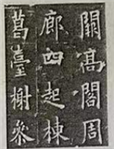 闕高閣周
廊四起棟
葛臺榭參